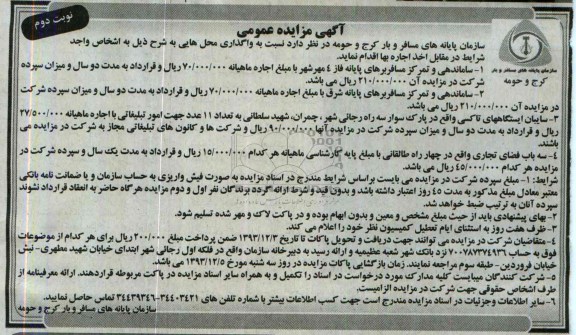 نوبت دوم
آگهی مزایده عمومی
سازمان پایانه های مسافر و بار کرج و حومه در نظر دارد نسبت به واگذاری محل هایی به شرح ذیل به اشخاص واجد
شرایط در مقابل اخذ اجاره بها اقدام نماید.
سازمان پایانه های مسافر و بار
کرج و حومه
۱- ساماندهی و تمرکز مسافربرهای پایانه فاز ۴ مهرشهر با مبلغ اجاره ماهیانه ۷۰/۰۰۰/۰۰۰ ریال و قرارداد به مدت دو سال و میزان سپرده
شرکت در مزایده آن ۲۱۰/۰۰۰/۰۰۰ ریال می باشد.
۲- ساماندهی و تمرکز مسافربرهای پایانه شرق با مبلغ اجاره ماهیانه ۷۰/۰۰۰/۰۰۰ ریال و قرارداد به مدت دو سال و میزان سپرده شرکت
در مزایده آن ۲۱۰/۰۰۰/۰۰۰ ریال می باشد.
۳- سایبان ایستگاههای تاکسی واقع در پارک سوار سه راه رجائی شهر، چمران، شهید سلطانی به تعداد ۱۱ عدد جهت امور تبلیغاتی با اجاره ماهیانه ۲۷/۵۰۰/۰۰۰
ریال و قرارداد به مدت دو سال و میزان سپرده شرکت در مزایده آنها ۹۰/۰۰۰/۰۰۰ ریال و شرکت ها و کانون های تبلیغاتی مجاز به شرکت در مزایده می
باشند.
۴- سه باب فضای تجاری واقع در چهار راه طالقانی با مبلغ پایه کارشناسی ماهیانه هر کدام ۱۵/۰۰۰/۰۰۰ ریال و قرارداد به مدت یک سال و سپرده شرکت در
مزایده هر کدام ۴۵/۰۰۰/۰۰۰ ریال می باشد.
شرایط: ۱- مبلغ سپرده شرکت در مزایده می بایست براساس شرایط مندرج در اسناد مزایده به صورت فیش واریزی به حساب سازمان و یا ضمانت نامه بانکی
معتبر معادل مبلغ مذکور به مدت ۴۵ روز اعتبار داشته باشد و بدون قید و شرط ارائه گردد برندگان نفر اول و دوم مزایده هرگاه حاضر به انعقاد قرارداد نشوند
سپرده آنان به ترتیب ضبط خواهد شد.
۲- بهای پیشنهادی باید از حیث مبلغ مشخص و معین و بدون ابهام بوده و در پاکت لاک و مهر شده تسلیم شود.
۳- ظرف هفت روز به استثنای ایام تعطیل کمیسیون نظر خود را اعلام می کند.
۴- متقاضیان شرکت در مزایده می توانند جهت دریافت و تحویل پاکات تا تاریخ ۱۳۹۳/۱۲/۳ ضمن پرداخت مبلغ ۲۰۰/۰۰۰ ریال برای هر کدام از موضوعات
فوق به حساب ۷۰۰۷۸۷۳۷۴۹۳۶ نزد بانک شهر شعبه عظیمیه و ارائه رسید به دبیرخانه سازمان واقع در فلکه اول رجائی شهر ابتدای خیابان شهید مطهری- نبش
خیابان فروردین - طبقه سوم مراجعه نمایند. زمان بازگشایی پاکات مزایده در روز سه شنبه مورخ ۱۳۹۳/۱۲/۵ می باشد.
۵- شرکت کنندگان میبایست کلیه مدارک مورد درخواست در اسناد را تکمیل و به همراه سایر اسناد مزایده در پاکت مربوطه قراردهند. ارائه معرفینامه از
طرف اشخاص حقوقی جهت شرکت در مزایده الزامیست.
۶- سایر اطلاعات وجزئیات در اسناد مزایده مندرج است جهت کسب اطلاعات بیشتر با شماره تلفن های ۳۴۴۰۳۴۲۱-۳۴۴۳۹۳۴۶ تماس حاصل نمایید.
سازمان پایانه های مسافر و بار کرج و حومه